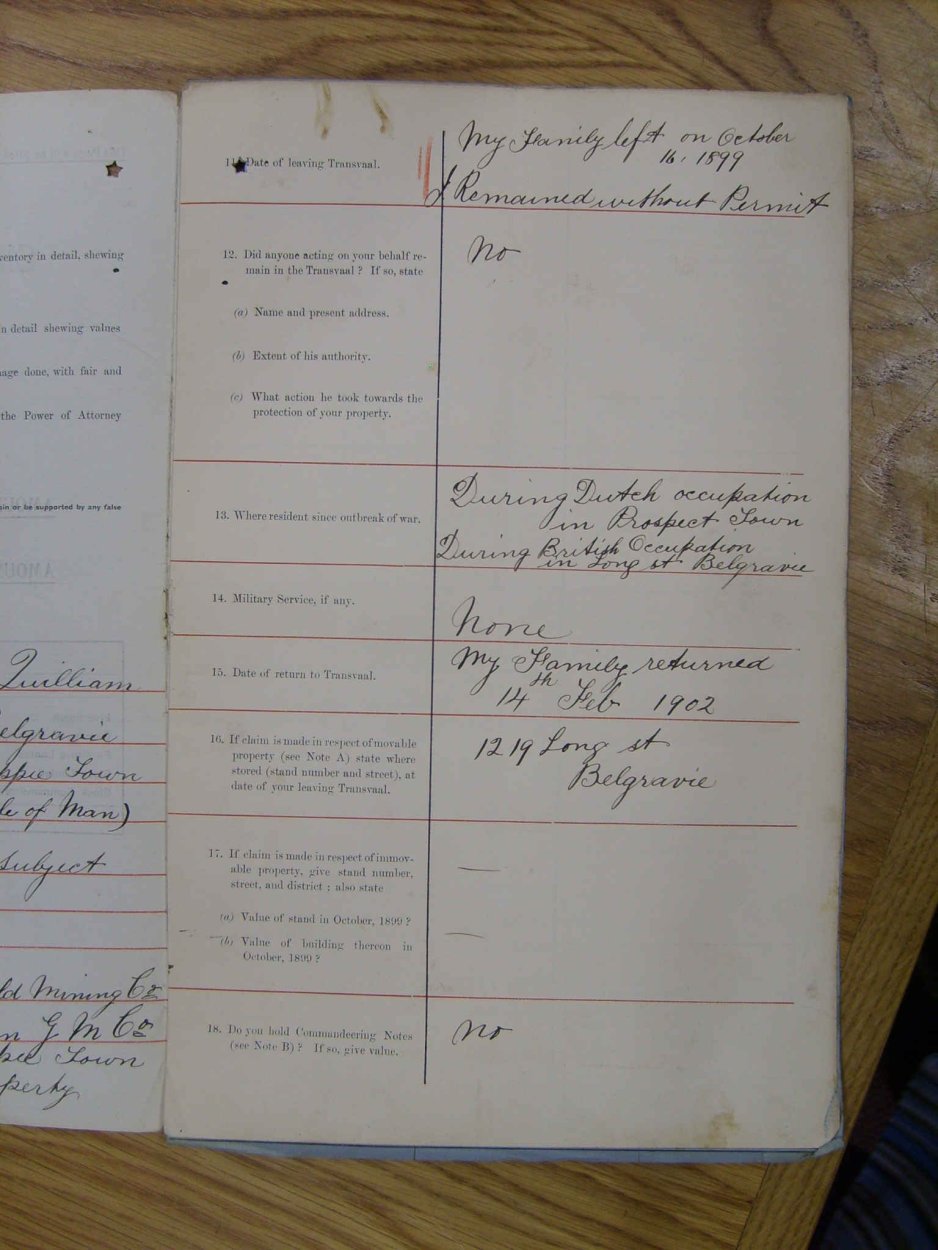 ventory in detail, shewing
n detail shewing values
nage done, with fair and
the Power of Attorney
gin or be supported by any false
Quilliam
elgravie
ppie Town
le of Man)
Subject
ld Mining Co
n G M Co
pie Town
perty
11. Date of leaving Transvaal.
My Family left on October
16. 1899
I Remained without Permit
12. Did anyone acting on your behalf re-
main in the Transvaal? If so, state
No
(a) Name and present address.
(b) Extent of his authority.
(c) What action he took towards the
protection of your property.
13. Where resident since outbreak of war.
During Dutch occupation
in Prospect Town
During British Occupation
in Long st Belgravie
14. Military Service, if any.
None
15. Date of return to Transvaal.
My Family returned
14th Feb 1902
16. If claim is made in respect of movable
property (see Note A) state where
stored (stand number and street), at
date of your leaving Transvaal.
1219 Long st
Belgravie
17. If claim is made in respect of immov-
able property, give stand number,
street, and district; also state
—
(a) Value of stand in October, 1899?
(b) Value of building thereon in
October, 1899?
—
18. Do you hold Commandeering Notes
(see Note B)? If so, give value.
No